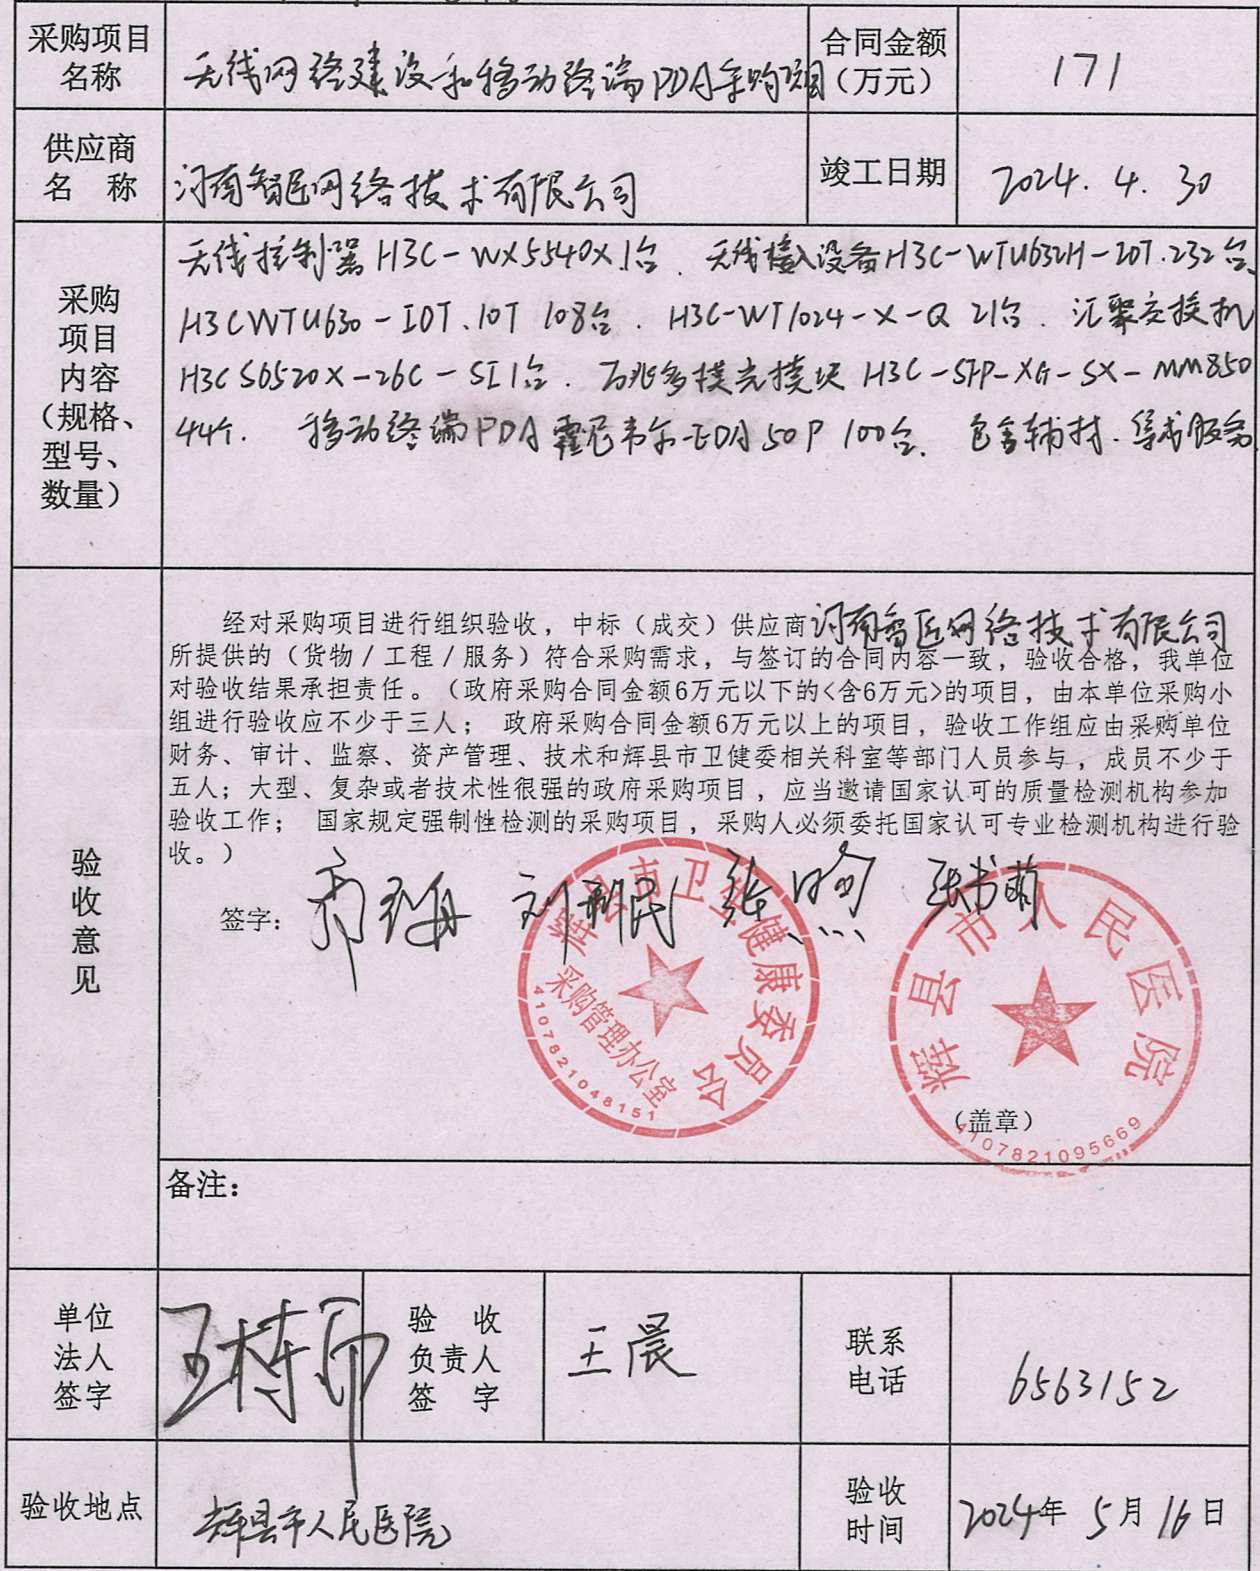 采购项目
名称
无线网络建设和移动终端PDA采购项目
合同金额
（万元）
171
供应商
名 称
河南智匠网络技术有限公司
竣工日期
2024.4.30
采购
项目
内容
（规格、
型号、
数量）
无线控制器H3C-WX5540X 1台、无线接入设备H3C-WTU632H-IOT.232台、
H3CWTU630-IOT、IOT 108台、H3C-WT1024-X-Q 21台、汇聚交换机
H3C S6520X-26C-SI 1台、万兆多模光模块 H3C-SFP-XG-SX-MM850
44个、移动终端PDA霍尼韦尔-EDA50P 100台、包含辅材、集成服务
验
收
意
见
经对采购项目进行组织验收，中标（成交）供应商河南智匠网络技术有限公司
所提供的（货物/工程/服务）符合采购需求，与签订的合同内容一致，验收合格，我单位
对验收结果承担责任。（政府采购合同金额6万元以下的<含6万元>的项目，由本单位采购小
组进行验收应不少于三人； 政府采购合同金额6万元以上的项目，验收工作组应由采购单位
财务、审计、监察、资产管理、技术和辉县市卫健委相关科室等部门人员参与，成员不少于
五人；大型、复杂或者技术性很强的政府采购项目，应当邀请国家认可的质量检测机构参加
验收工作； 国家规定强制性检测的采购项目，采购人必须委托国家认可专业检测机构进行验
收。）
签字：
刘新民 张煦 张书萌
辉县市卫生健康委员会
采购管理办公室
4107821048151
辉县市人民医院
（盖章）
4107821095669
备注：
单位
法人
签字
验 收
负责人
签 字
王晨
联系
电话
6563152
验收地点
辉县市人民医院
验收
时间
2024年 5月16日